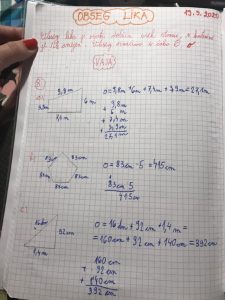 OBSEG LIKA
19. 5. 2020
Obseg lika je vsota dolžin vseh stranic, s katerimi
je lik omejen. Obseg označimo s črko O.
VAJA
8.
a)
9,8m
6m
7,4m
o=9,8m+6m+7,4m+3,9m=27,1m
9,8m
6m
+7,4m
3,9m
27,1m
b)
83cm
83cm
83cm
o=83cm·5=415cm
83cm·5
415cm
c)
16dm
92cm
1,4m
o=16dm+92cm+1,4m=
=160cm+92cm+140cm=392cm
160cm
+ 92cm
+ 140cm
392cm